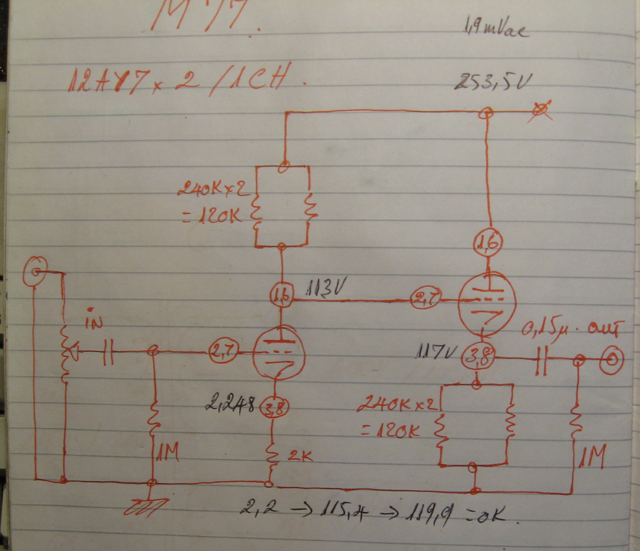 1,9 mVac
12AY7 x 2 / 1CH.
253,5V
240K x 2
= 120K
1,6
1,6
113V
2,7
in
0,15µ. out
2,7
117V
3,8
2,248
3,8
240K x 2
= 120K
1M
2K
1M
2,2 → 115,4 → 119,9 = OK.